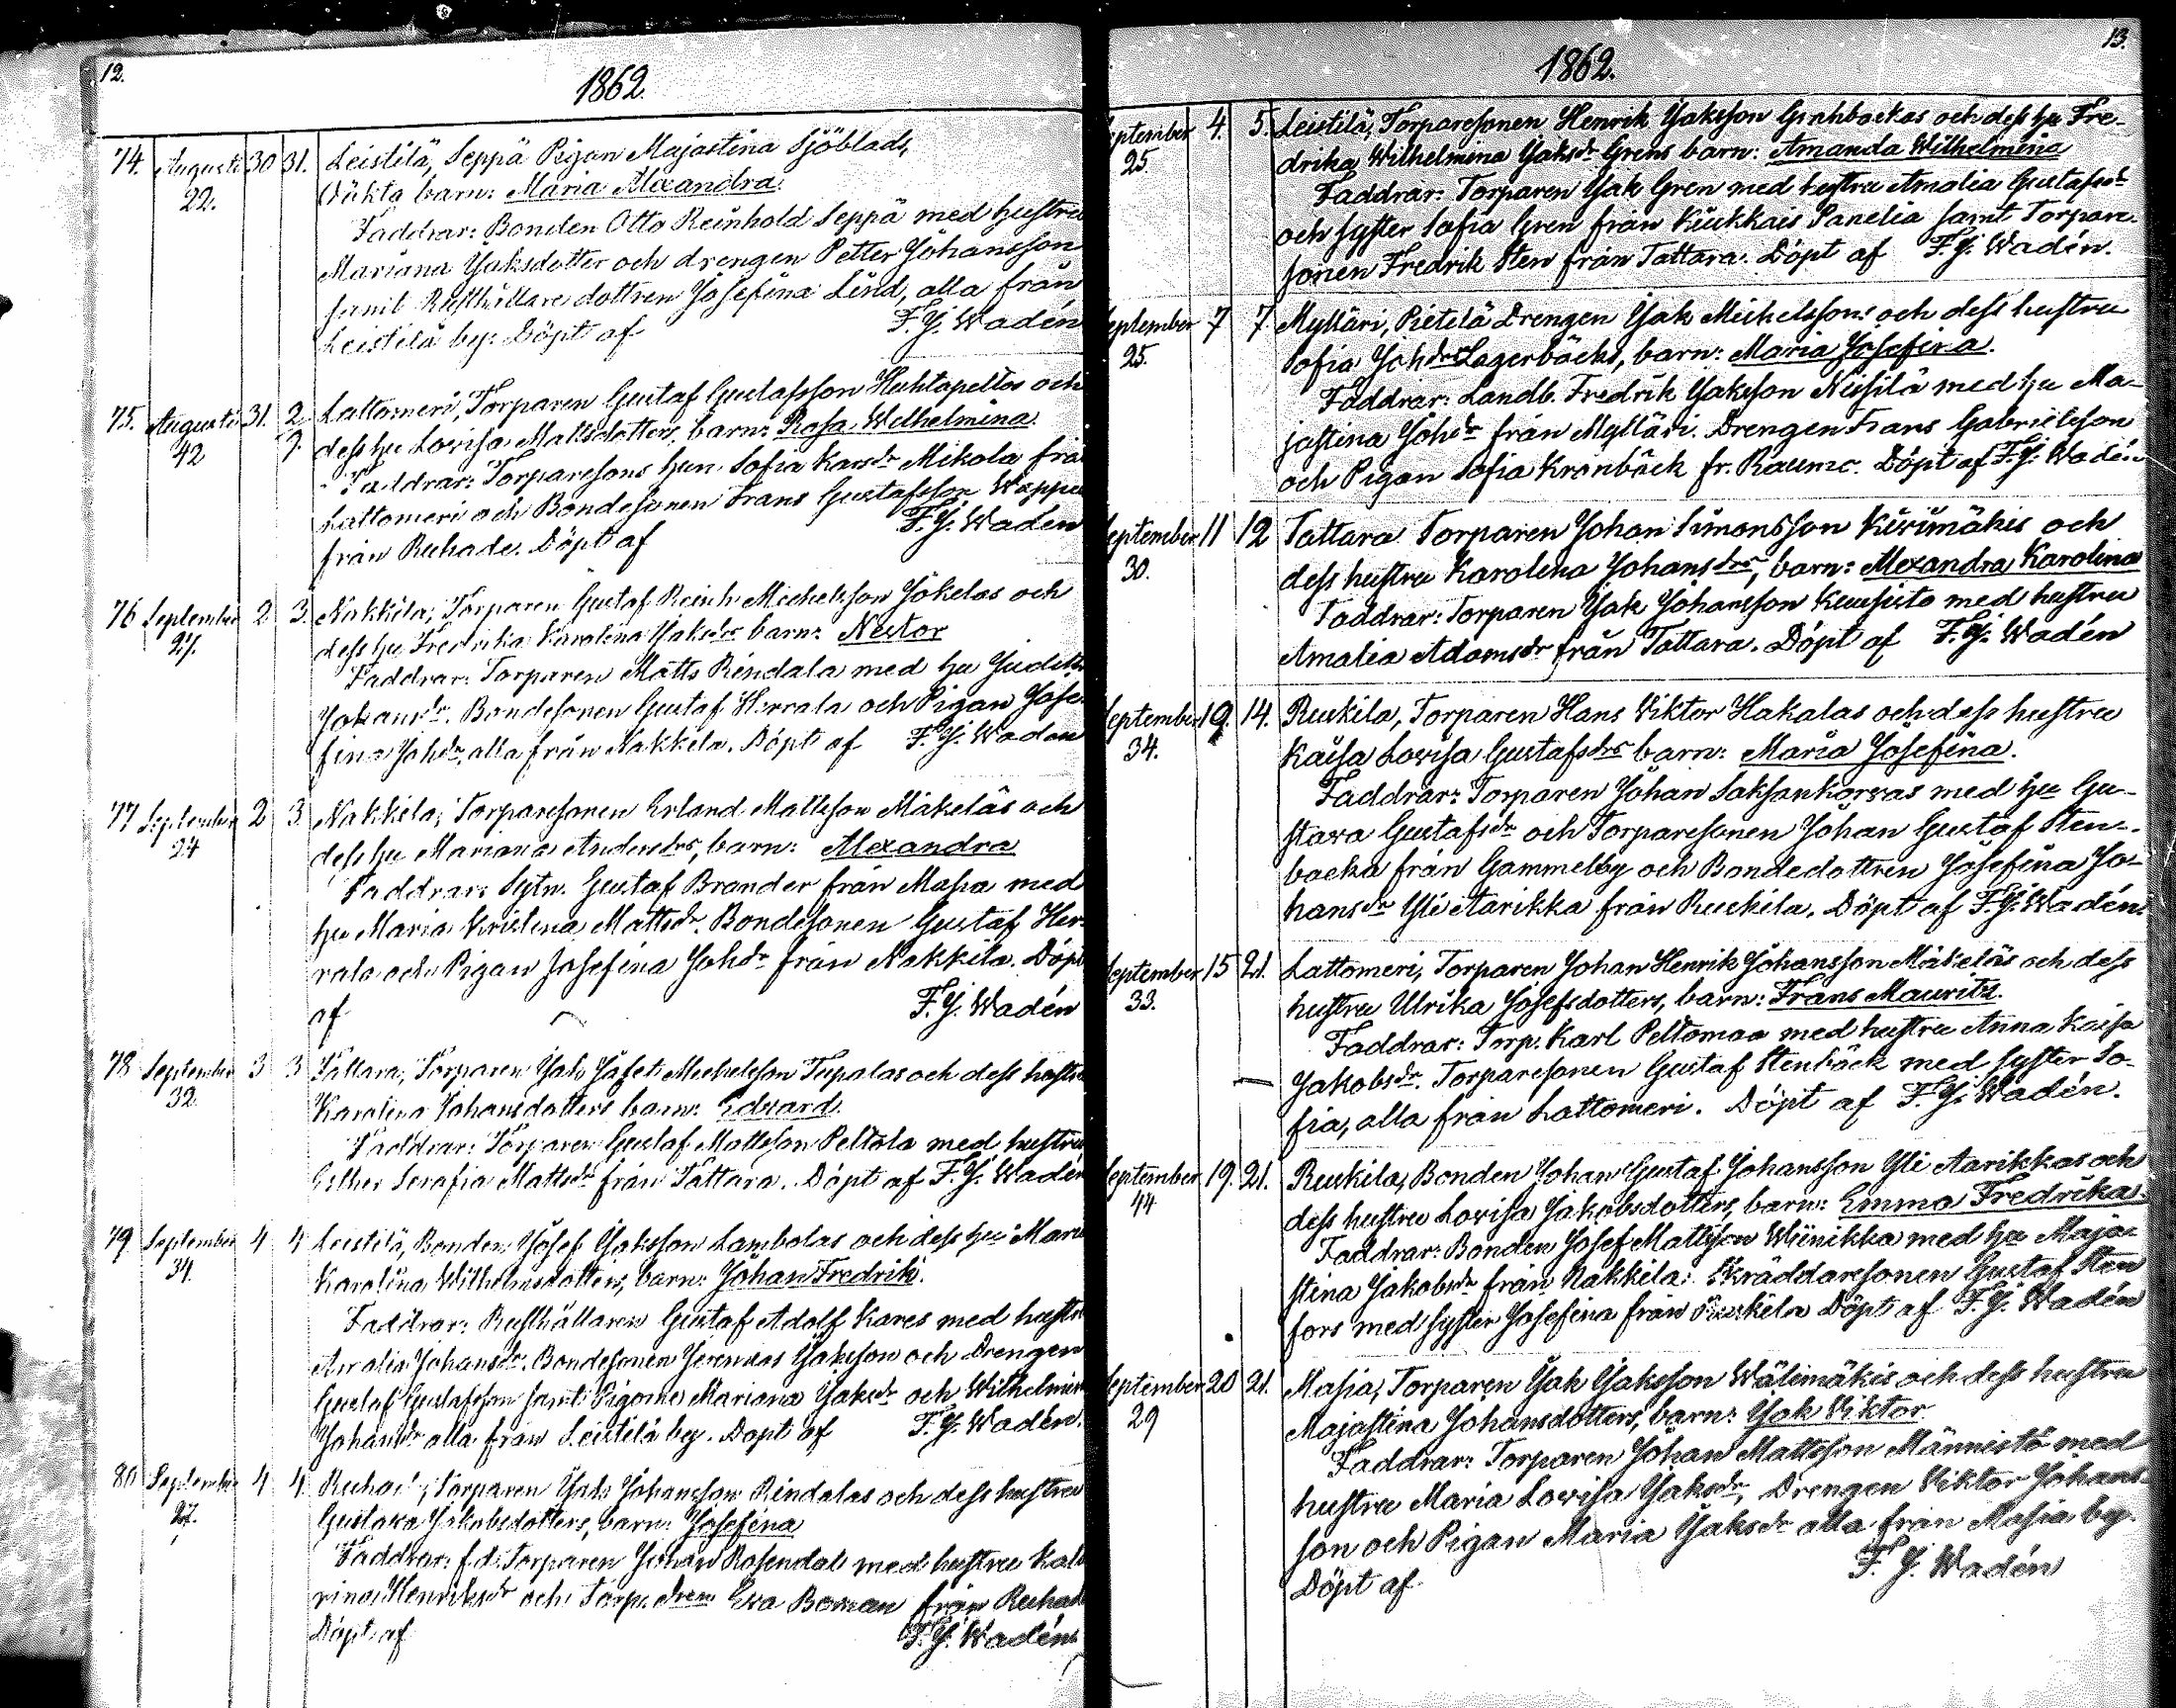 12.
1862.
74. Augusti 30 31. Leistilä, Seppä Pigan Majastina Sjöblads,
22. Oäkta barn: Maria Alexandra.
Faddrar: Bonden Otto Reinhold Seppä med hustru
Mariana Jaksdotter och drengen Petter Johansson
samt Rusthållare dottren Josefina Lind, alla från
Leistilä by. Döpt af F. J. Wadén
75. Augusti 31. 2 Lattomeri, Torparen Gustaf Gustafsson Huhtapeltos och
42 dess hu Lovisa Mattsdotters, barn: Rosa Wilhelmina.
Faddrar: Torparesons hun Sofia Karsdr Mikola från
Lattomeri och Bondesonen Frans Gustafsson Wappu
från Ruhade. Döpt af F. J. Wadén
76 September 2 3. Nakkila, Torparen Gustaf Reinh. Michelsson Jokelas och
dess hu Fredrika Karolina Jaksdrs barn: Nestor
Faddrar: Torparen Matts Rindala med hu Judith
Johansdr. Bondesonen Gustaf Herrala och Pigan Jose-
fina Johdr, alla från Nakkila. Döpt af F. J. Wadén
77 September 2 3. Nakkila, Torparesonen Erland Mattsson Mäkeläs och
24 dess hu Mariana Andersdrs, barn: Alexandra
Faddrar: Sytn. Gustaf Brander från Masia med
hu Maria Kristina Mattsdr. Bondesonen Gustaf Her-
rala och Pigan Josefina Johdr från Nakkila. Döpt
af F. J. Wadén
78 September 3 3 Tattara, Torparen Jak Jafet Michelsson Tupalas och dess hustru
32. Karolina Johansdotters barn: Edvard.
Faddrar: Torparen Gustaf Mattsson Peltola med hustru
Esther Serafia Mattsdr från Tattara. Döpt af F. J. Wadén
79 September 4 4 Leistilä, Bonden Josef Jaksson Lambolas och dess hu Maria
34. Karolina Wilhelmsdotters, barn: Johan Fredrik.
Faddrar: Rusthållaren Gustaf Adolf Kares med hustru
Amalia Johansdr. Bondesonen Jeremias Jaksson och Drengen
Gustaf Gustafsson samt Pigorne Mariana Jaksdr och Wilhelmina
Johansdr alla från Leistilä by. Döpt af F. J. Wadén.
80 September 4 4. Ruhade, Torparen Jak Johansson Rindalas och dess hustru
27. Gustava Jakobsdotters, barn: Josefina
Faddrar: f.d. Torparen Johan Rosendal med hustru Kata-
rina Henriksdr och Torp. dren Eva Boman från Ruhade
Döpt af F. J. Wadén
13.
1862.
September 4. 5. Leistilä, Torparesonen Henrik Jaksson Grahbackas och dess hu Fre-
25. drika Wilhelmina Jaksdr Grens barn: Amanda Wilhelmina
Faddrar: Torparen Jak Gren med hustru Amalia Gustafsdr
och syster Sofia Gren från Kiukkais Panelia samt Torpare-
sonen Fredrik Sten från Tattara. Döpt af F. J. Wadén.
September 7 7. Mylläri, Pietilä Drengen Jak Michelssons och dess hustru
25. Sofia Johdrs Lagerbäcks, barn: Maria Josefina.
Faddrar: Landb. Fredrik Jaksson Nissilä med hu Ma-
jastina Johdr från Mylläri. Drengen Frans Gabrielsson
och Pigan Sofia Kronbäck fr. Raumo. Döpt af F. J. Wadén
September 11 12 Tattara Torparen Johan Simonsson Kivimäkis och
30. dess hustru Karolina Johansdrs, barn: Alexandra Karolina
Faddrar: Torparen Jak Johansson Kuusisto med hustru
Amalia Adamsdr från Tattara. Döpt af F. J. Wadén
September 19. 14. Ruskila, Torparen Hans Viktor Hakalas och dess hustru
34. Kaisa Lovisa Gustafsdrs barn: Maria Josefina.
Faddrar: Torparen Johan Saksankorvas med hu Gu-
stava Gustafsdr och Torparesonen Johan Gustaf Sten-
backa från Gammelby och Bondedottren Josefina Jo-
hansdr Yli Aarikka från Ruskila. Döpt af F. J. Wadén.
September 15 21. Lattomeri, Torparen Johan Henrik Johansson Mäkeläs och dess
33. hustru Ulrika Josefsdotters, barn: Frans Maurits.
Faddrar: Torp. Karl Peltomaa med hustru Anna Kaisa
Jakobsdr. Torparesonen Gustaf Stenbäck med syster So-
fia, alla från Lattomeri. Döpt af F. J. Wadén.
September 19. 21. Ruskila, Bonden Johan Gustaf Johansson Yli Aarikkas och
44 dess hustru Lovisa Jakobsdotters, barn: Emma Fredrika.
Faddrar: Bonden Josef Mattsson Wiinikka med hu Maja-
stina Jakobsdr från Nakkila. Skräddaresonen Gustaf Sten
fors med syster Josefina från Ruskila Döpt af F. J. Wadén
September 20 21. Masia, Torparen Jak Jaksson Wälimäkis och dess hustru
29 Majastina Johansdotters, barn: Jak Viktor
Faddrar: Torparen Johan Mattsson Männistö med
hustru Maria Lovisa Jaksdr, Drengen Viktor Johans-
son och Pigan Maria Jaksdr alla från Masia by.
Döpt af F. J. Wadén